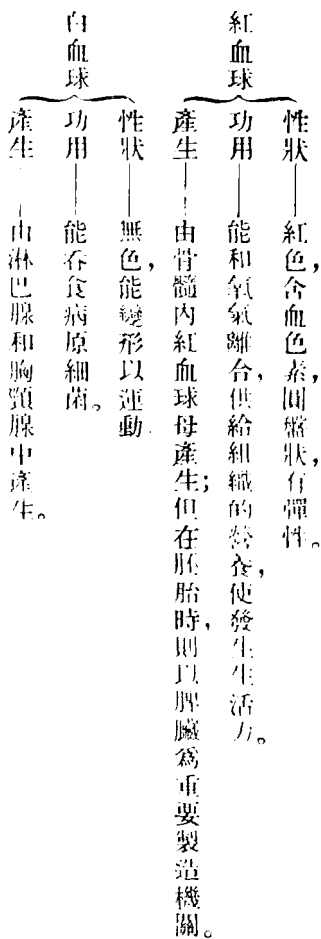 紅血球
性狀——紅色，含血色素，圓盤狀，有彈性。
功用——能和氧氣離合，供給組織的營養，使發生生活力。
產生——由骨髓內紅血球母產生；但在胚胎時，則以脾臟爲重要製造機關。
白血球
性狀——無色，能變形以運動
功用——能吞食病原細菌。
產生——由淋巴腺和胸頸腺中產生。